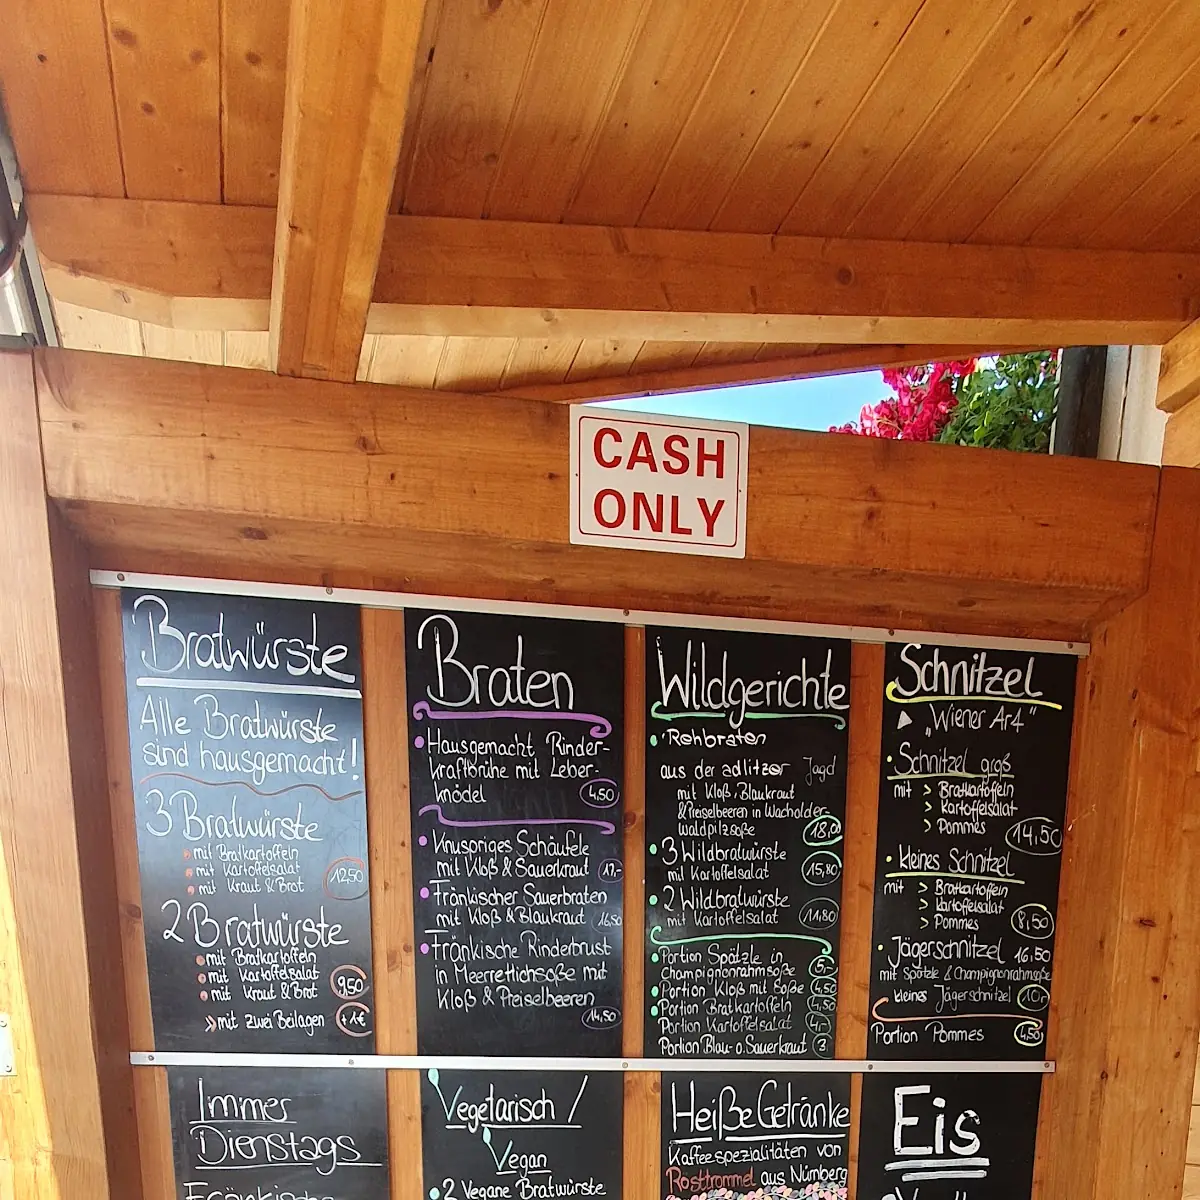 CASH
ONLY
Bratwürste
Alle Bratwürste
sind hausgemacht!
3 Bratwürste
mit Bratkartoffeln
mit Kartoffelsalat
mit Kraut & Brot
12,50
2 Bratwürste
mit Bratkartoffeln
mit Kartoffelsalat
mit Kraut & Brot
9,50
mit zwei Beilagen +1€
Braten
Hausgemacht Rinder-
kraftbrühe mit Leber-
knödel 4,50
Knuspriges Schäufele
mit Kloß & Sauerkraut 17,-
Fränkischer Sauerbraten
mit Kloß & Blaukraut 16,50
Fränkische Rinderbrust
in Meerrettichsoße mit
Kloß & Preiselbeeren
14,50
Wildgerichte
Rehbraten
aus der adlitzer Jagd
mit Kloß, Blaukraut
& Preiselbeeren in Wacholder
waldpilzsoße 18,00
3 Wildbratwürste
mit Kartoffelsalat 15,80
2 Wildbratwürste
mit Kartoffelsalat 11,80
Portion Spätzle in
champignonrahmsoße 5,-
Portion Kloß mit Soße 4,50
Portion Bratkartoffeln 4,50
Portion Kartoffelsalat 4,-
Portion Blau- o. Sauerkraut 3
Schnitzel
"Wiener Art"
Schnitzel groß
mit > Bratkartoffeln
> Kartoffelsalat
> Pommes
14,50
kleines Schnitzel
mit > Bratkartoffeln
> Kartoffelsalat
> Pommes
8,50
Jägerschnitzel 16,50
mit Spätzle & Champignonrahmsoße
kleines Jägerschnitzel 10,-
Portion Pommes 4,50
Immer
Dienstags
Fränkische
Vegetarisch /
Vegan
2 Vegane Bratwürste
Heiße Getränke
Kaffeespezialitäten von
Rösttrommel aus Nürnberg
Eis